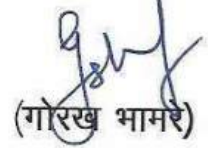 (गोरख भामरे)